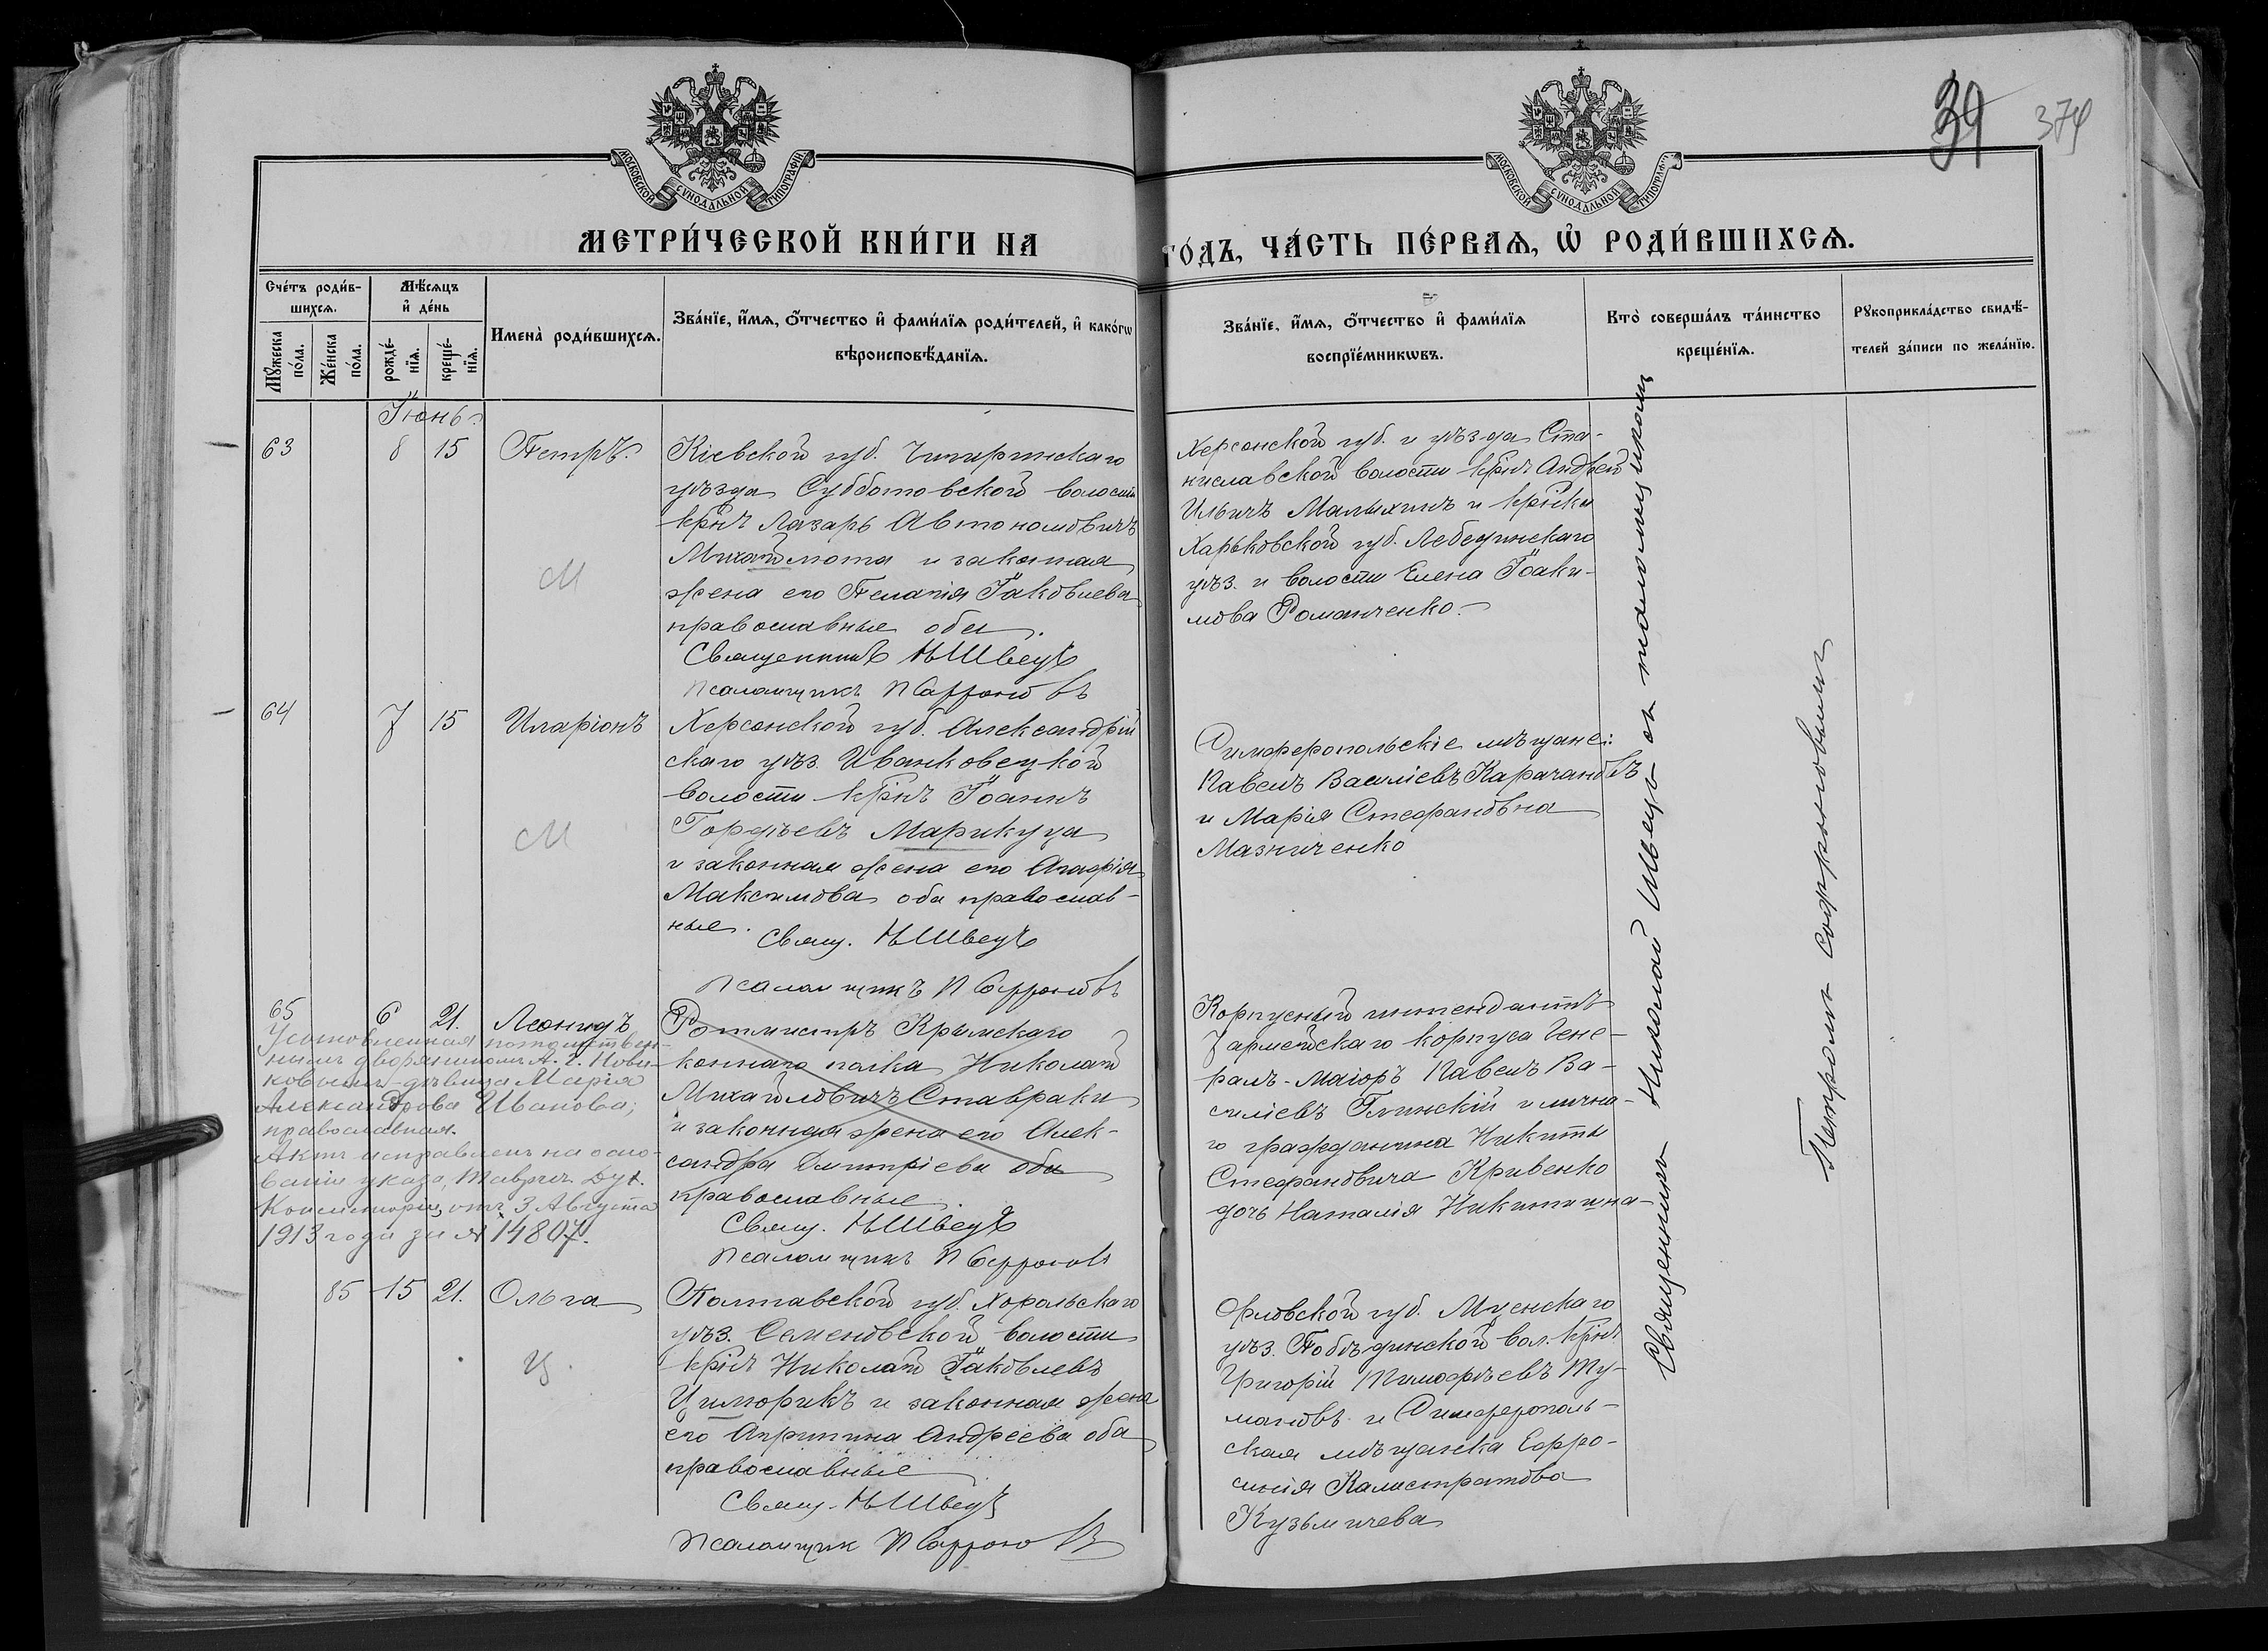 39 374
МОСКОВСКОЙ СУНОДАЛЬНОЙ ТИПОГРАФІИ
МОСКОВСКОЙ СУНОДАЛЬНОЙ ТИПОГРАФІИ
МЕТРИ́ЧЕСКОЙ КНИ́ГИ НА
ГО́ДЪ, ЧА́СТЬ ПЕ́РВАѦ, Ѡ҆ РОДИ́ВШИХСѦ.
Сче́тъ роди́в-
шихсѧ.
Мꙋ́жеска по́ла.
Же́нска по́ла.
Мѣ́сѧцъ
и҆ де́нь
рожде́-нїѧ.
креще́-нїѧ.
Имена̀ роди́вшихсѧ.
Зва́нїе, и҆́мѧ, ѻ҆́тчество и҆ фами́лїѧ роди́телей, и҆ како́гѡ
вѣроисповѣ́данїѧ.
Зва́нїе, и҆́мѧ, ѻ҆́тчество и҆ фами́лїѧ
воспрїе́мникѡвъ.
Кто̀ соверша́лъ та́инство
креще́нїѧ.
Рꙋкоприкла́дство свидѣ́-
телей за́писи по жела́нїю.
Іюнь
63 8 15 Петръ.
М
Кіевской губ. Чигиринскаго
уѣзда Субботовской волости
крнъ Лазарь Автономовичъ
Михайлюта и законная
жена его Пелагія Іаковлева
православные оба.
Священникъ НШвецъ
Псаломщикъ ПСофроновъ
Херсонской губ. и уѣзда Ста-
ниславской волости крнъ Андрей
Ильичъ Малыхинъ и крнка
Харьковской губ. Лебединскаго
уѣз. и волости Елена Іоаки-
мова Романченко.
64 7 15 Иларіонъ
М
Херсонской губ. Александрій
скаго уѣз. Иванковецкой
волости крнъ Іоаннъ
Гордѣевъ Марикуца
и законная жена его Агафія
Максимова оба православ-
ные.
Свящ. НШвецъ
Псаломщикъ ПСофроновъ
Симферопольскіе мѣщане:
Павелъ Василіевъ Карачановъ
и Марія Стефановна
Мазниченко
65 6 21. Леонидъ
Усыновленная потомствен-
нымъ дворяниномъ А. Г. Нови-
ковымъ - дѣвица Марія
Александрова Иванова,
православная.
Актъ исправленъ на осно-
ваніи указа Таврич. Дух.
Консисторіи, отъ 3 Августа
1913 года за № 14807.
Ротмистръ Крымскаго
коннаго полка Николай
Михайловичъ Ставраки
и законная жена его Алек-
сандра Дмитріева оба
православные.
Свящ. НШвецъ
Псаломщикъ ПСофроновъ
Корпусный интендантъ
7 армейскаго корпуса Гене-
ралъ-Маіоръ Павелъ Ва-
силіевъ Глинскій и лична-
го гражданина Никиты
Стефановича Кривенко
дочь Наталія Никитична
85 15 21. Ольга
Ц.
Полтавской губ. Хорольскаго
уѣз. Семеновской волости
крнъ Николай Іаковлевъ
Цимюрикъ и законная жена
его Агрипина Андреева оба
православные
Свящ. НШвецъ
Псаломщик ПСофроновъ
Орловской губ. Мценскаго
уѣз. Побѣдинской вол. крнъ
Григорій Тимофѣевъ Ту-
мановъ и Симферополь-
ская мѣщанка Ефро-
синія Калистратова
Кузьмичева
Священникъ Николай Швецъ съ псаломщикомъ
Петромъ Софроновымъ